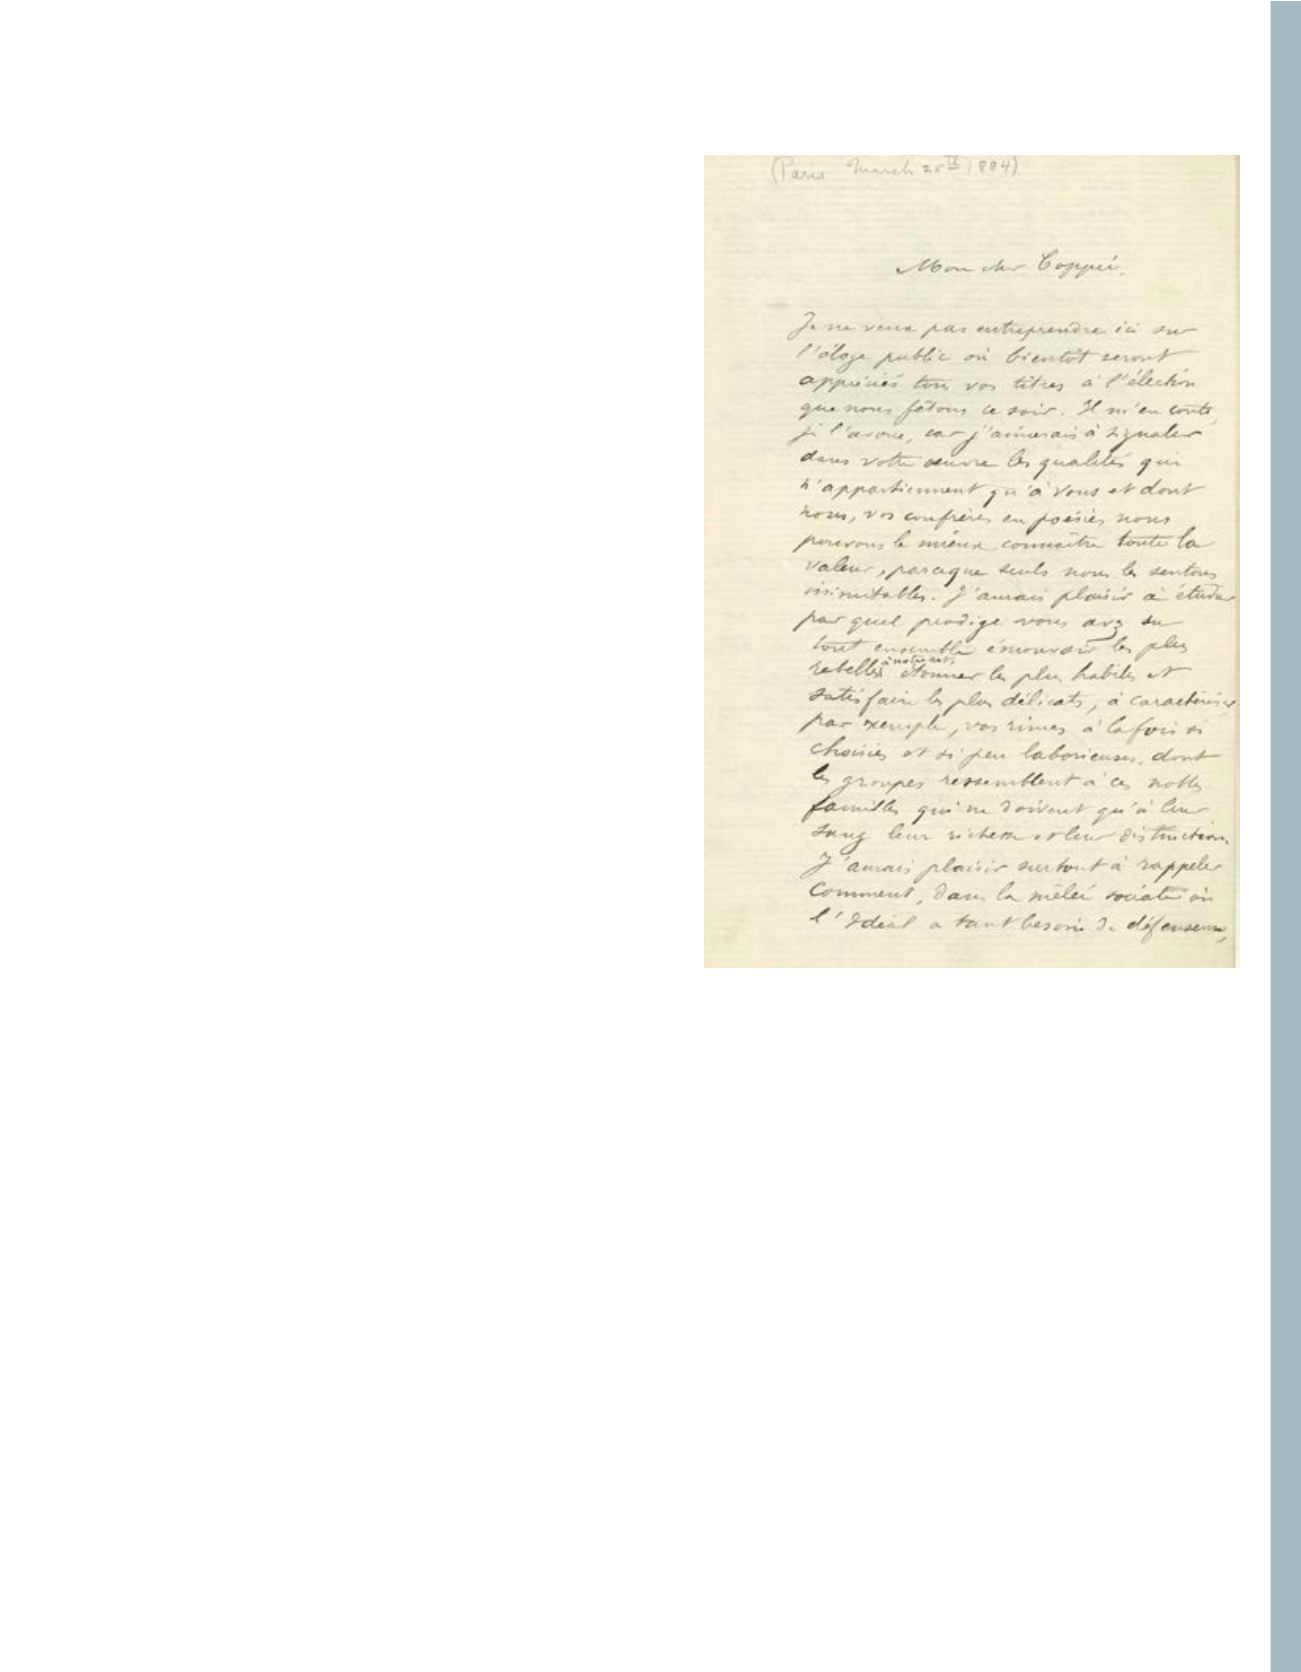 (Paris March 25th 1884)
Mon cher Coppée,
Je ne veux pas entreprendre ici sur
l'éloge public où bientôt seront
appréciés tous vos titres à l'élection
que nous fêtons ce soir. Il m'en coute,
je l'avoue, car j'aimerais à signaler
dans votre œuvre les qualités qui
n'appartiennent qu'à vous et dont
nous, vos confrères en poésies nous
pouvons le mieux connaître toute la
valeur, parceque seuls nous les sentons
inimitables. J'aurais plaisir à étudier
par quel prodige vous avez su
tout ensemble émouvoir les plus
rebelles à notre art, étonner les plus habiles et
satisfaire les plus délicats, à caractériser
par exemple, vos rimes à la fois si
choisies et si peu laborieuses, dont
les groupes ressemblent à ces nobles
familles qui ne doivent qu'à leur
sang leur richesse et leur distinction.
J'aurais plaisir surtout à rappeler
comment, dans la mêlée sociale où
l'Idéal a tant besoin de défenseurs,